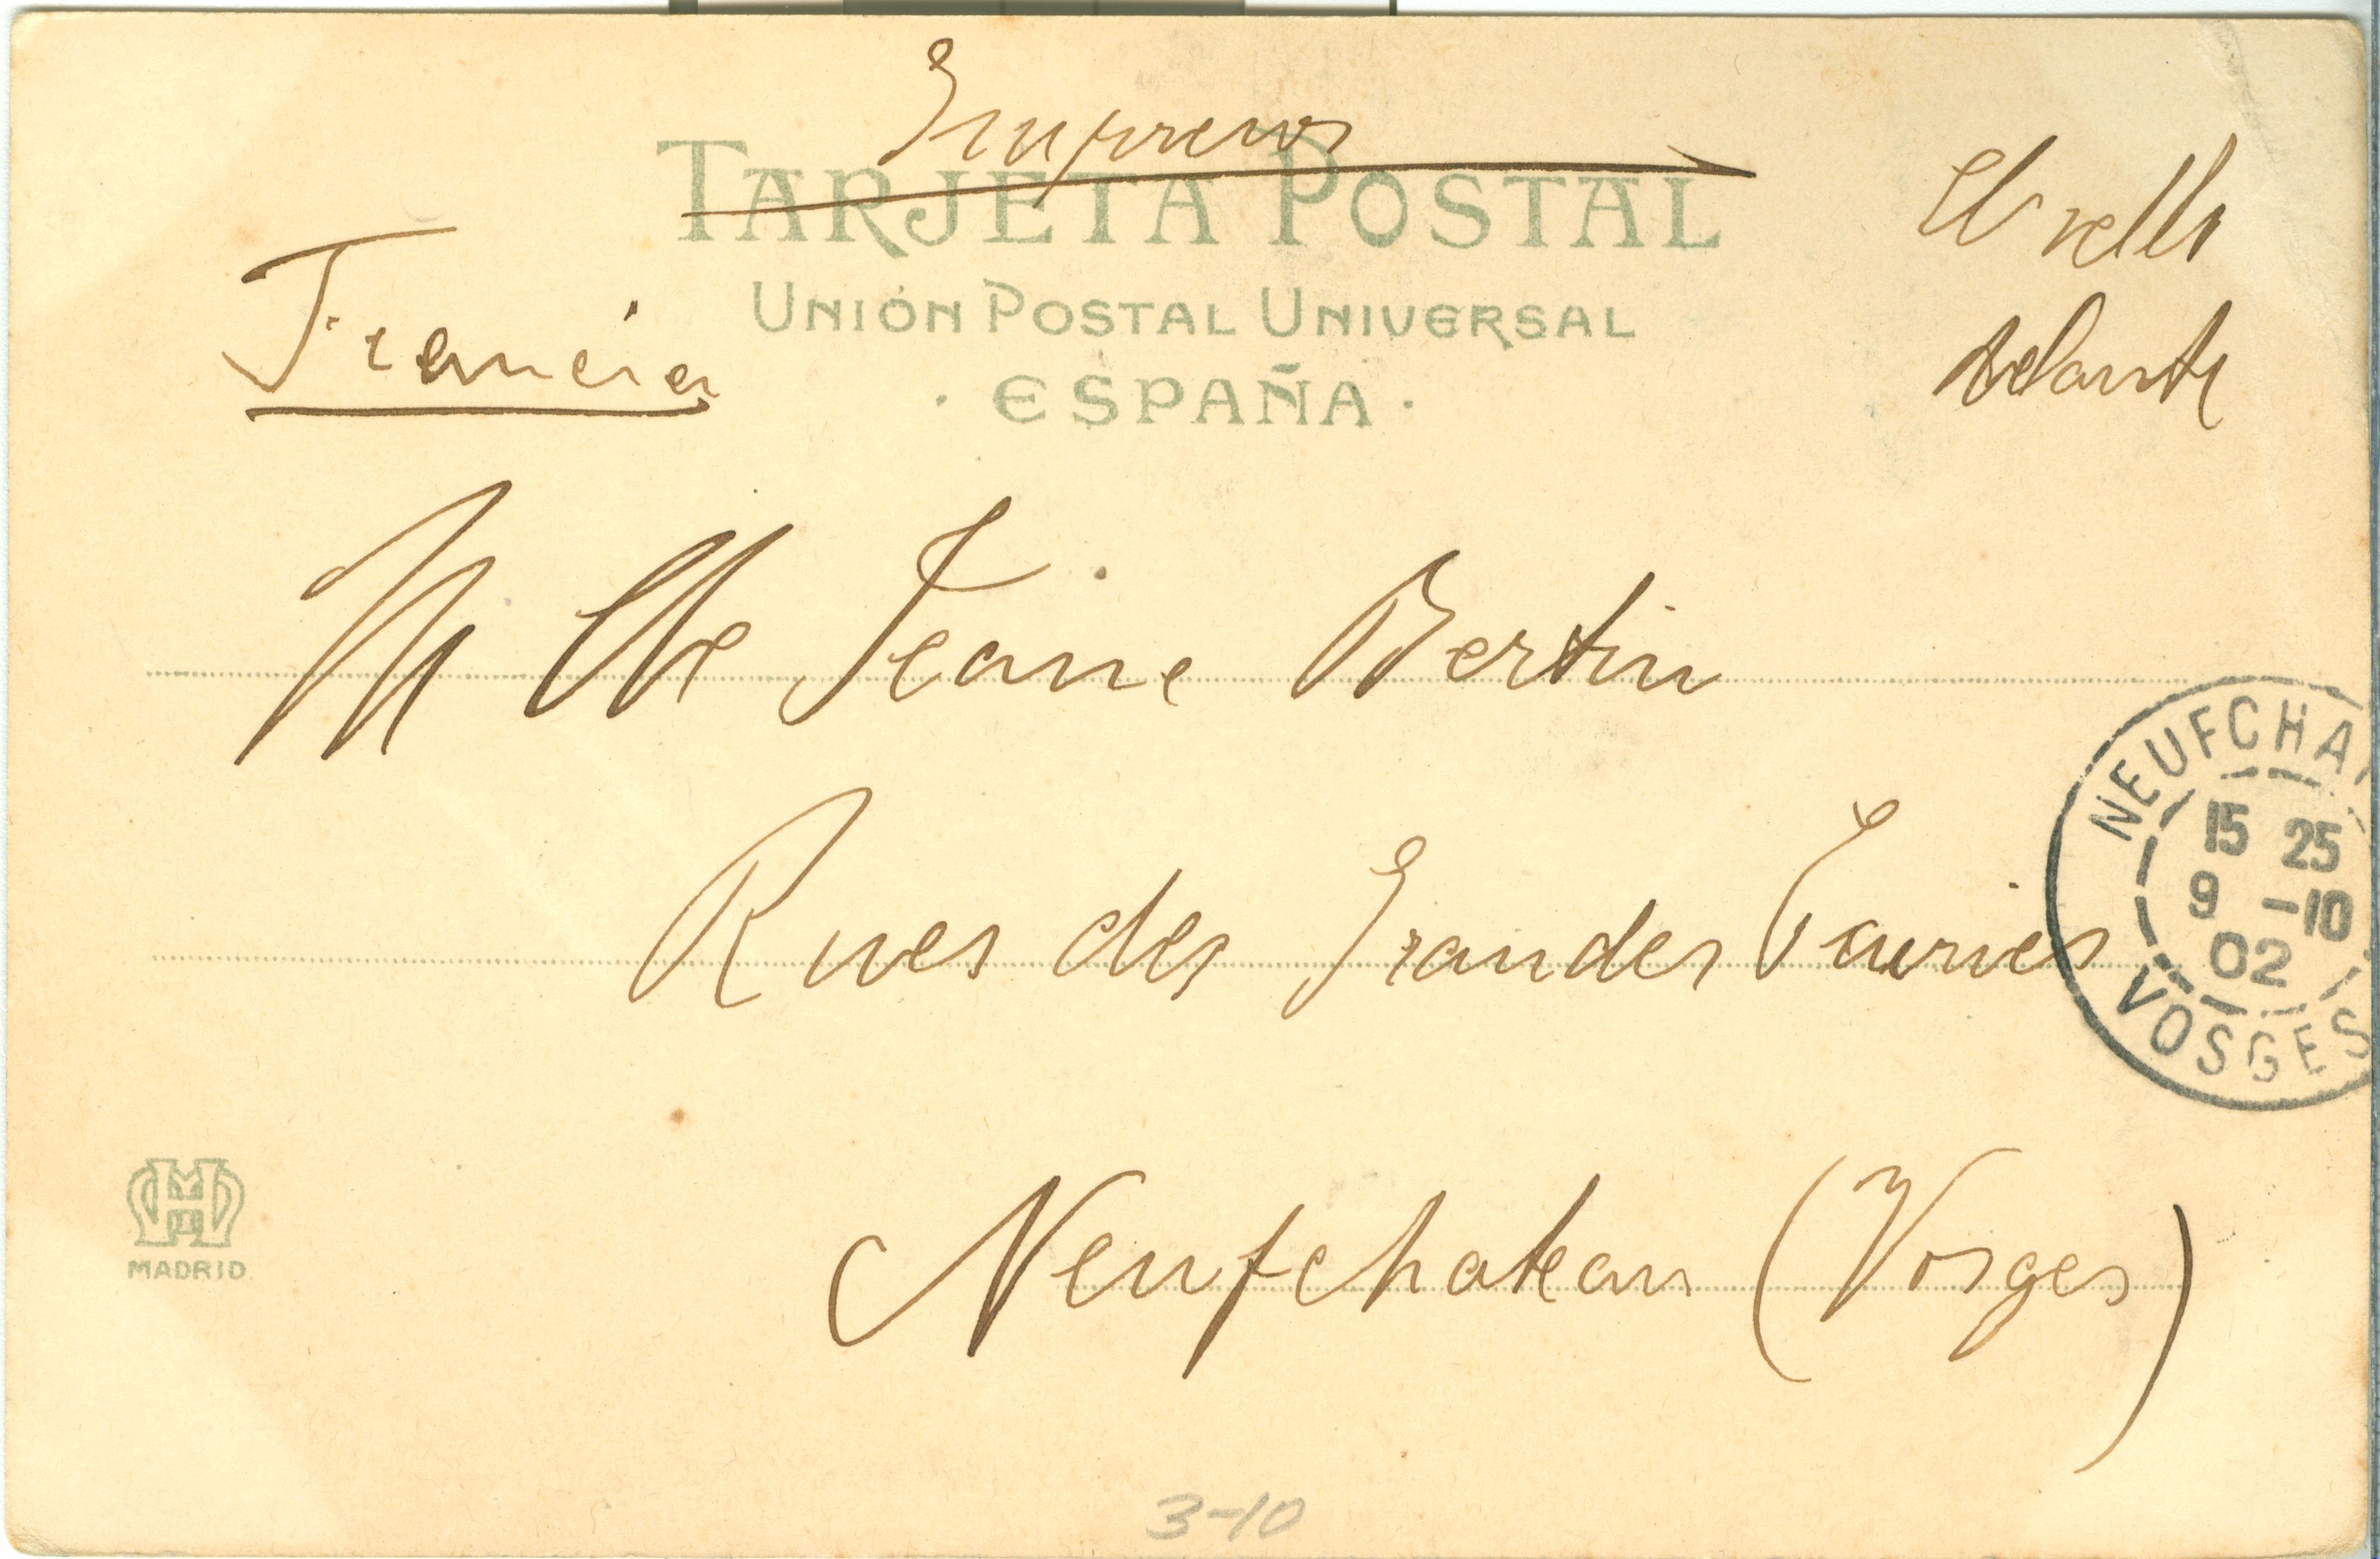 Impresos
TARJETA POSTAL
UNIÓN POSTAL UNIVERSAL
· ESPAÑA ·
Francia
El sello
delante
Mlle Jeanne Bertin
Rues des Grandes
Neufchateau (Vosges)
NEUFCHA
15 25
9 -10
02
VOSGES
MADRID
3-10